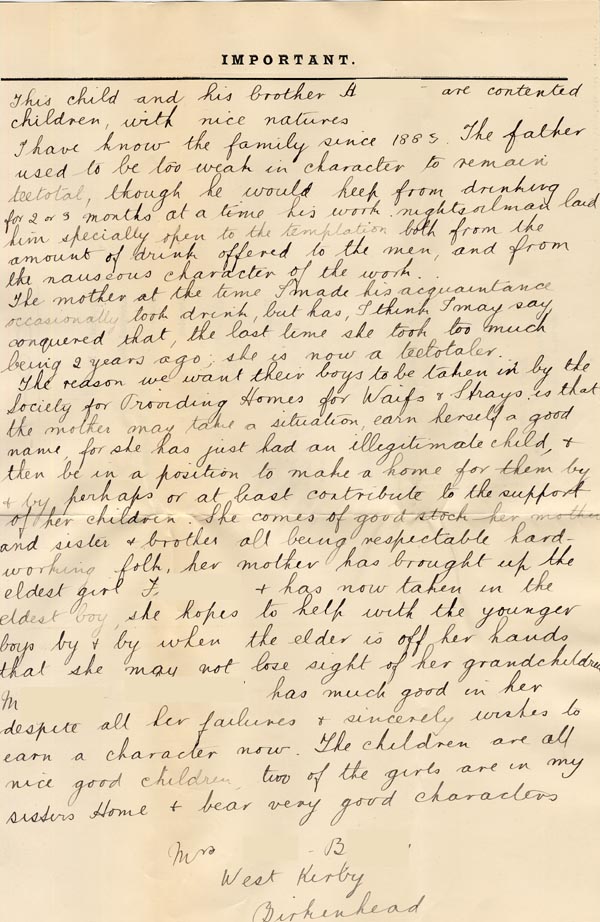 IMPORTANT.
This child and his brother A are contented
children, with nice natures
I have know the family since 1885. The father
used to be too weak in character to remain
teetotal, though he would keep from drinking
for 2 or 3 months at a time his work nightsoilman laid
him specially open to the temptation both from the
amount of drink offered to the men, and from
the nauseous character of the work.
The mother at the time I made his acquaintance
occasionally took drink, but has, I think I may say,
conquered that, the last time she took too much
being 2 years ago; she is now a teetotaler.
The reason we want their boys to be taken in by the
Society for Providing Homes for Waifs & Strays is that
the mother may take a situation, earn herself a good
name, for she has just had an illegitimate child, &
then be in a position to make a home for them by
& by perhaps or at least contribute to the support
of her children. She comes of good stock her mother
and sister & brother all being respectable hard-
working folk, her mother has brought up the
eldest girl F, & has now taken in the
eldest boy, she hopes to help with the younger
boys by & by when the elder is off her hands
that she may not lose sight of her grandchildren
M has much good in her
despite all her failures & sincerely wishes to
earn a character now. The children are all
nice good children, two of the girls are in my
sisters Home & bear very good characters
Mrs B
West Kirby
Birkenhead